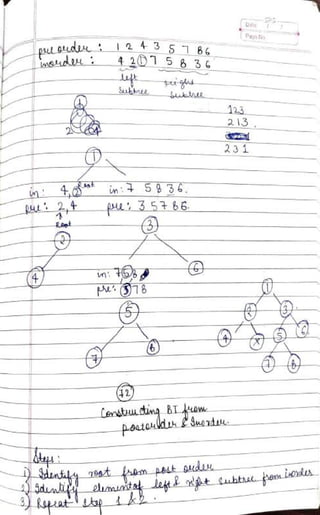 Date
Page No.
preorder : 1 2 4 3 5 7 8 6
inorder : 4 2 1 7 5 8 3 6
left subtree
right subtree
1 2 3
2 1 3
2 3 1
1
in: 4, 2 Root
in: 7 5 8 3 6.
pre: 2, 4
pre: 3 5 7 8 6.
Root
2
3
4
in: 7 5 8
6
pre: 5 7 8
5
7
8
1
2
3
4
X
5
6
7
8
72
Constructing BT from
postorder & Inorder.
Steps:
1) Identify root from post order
2) Identify element of left & right subtree from inorder
3) Repeat step 1 & 2.